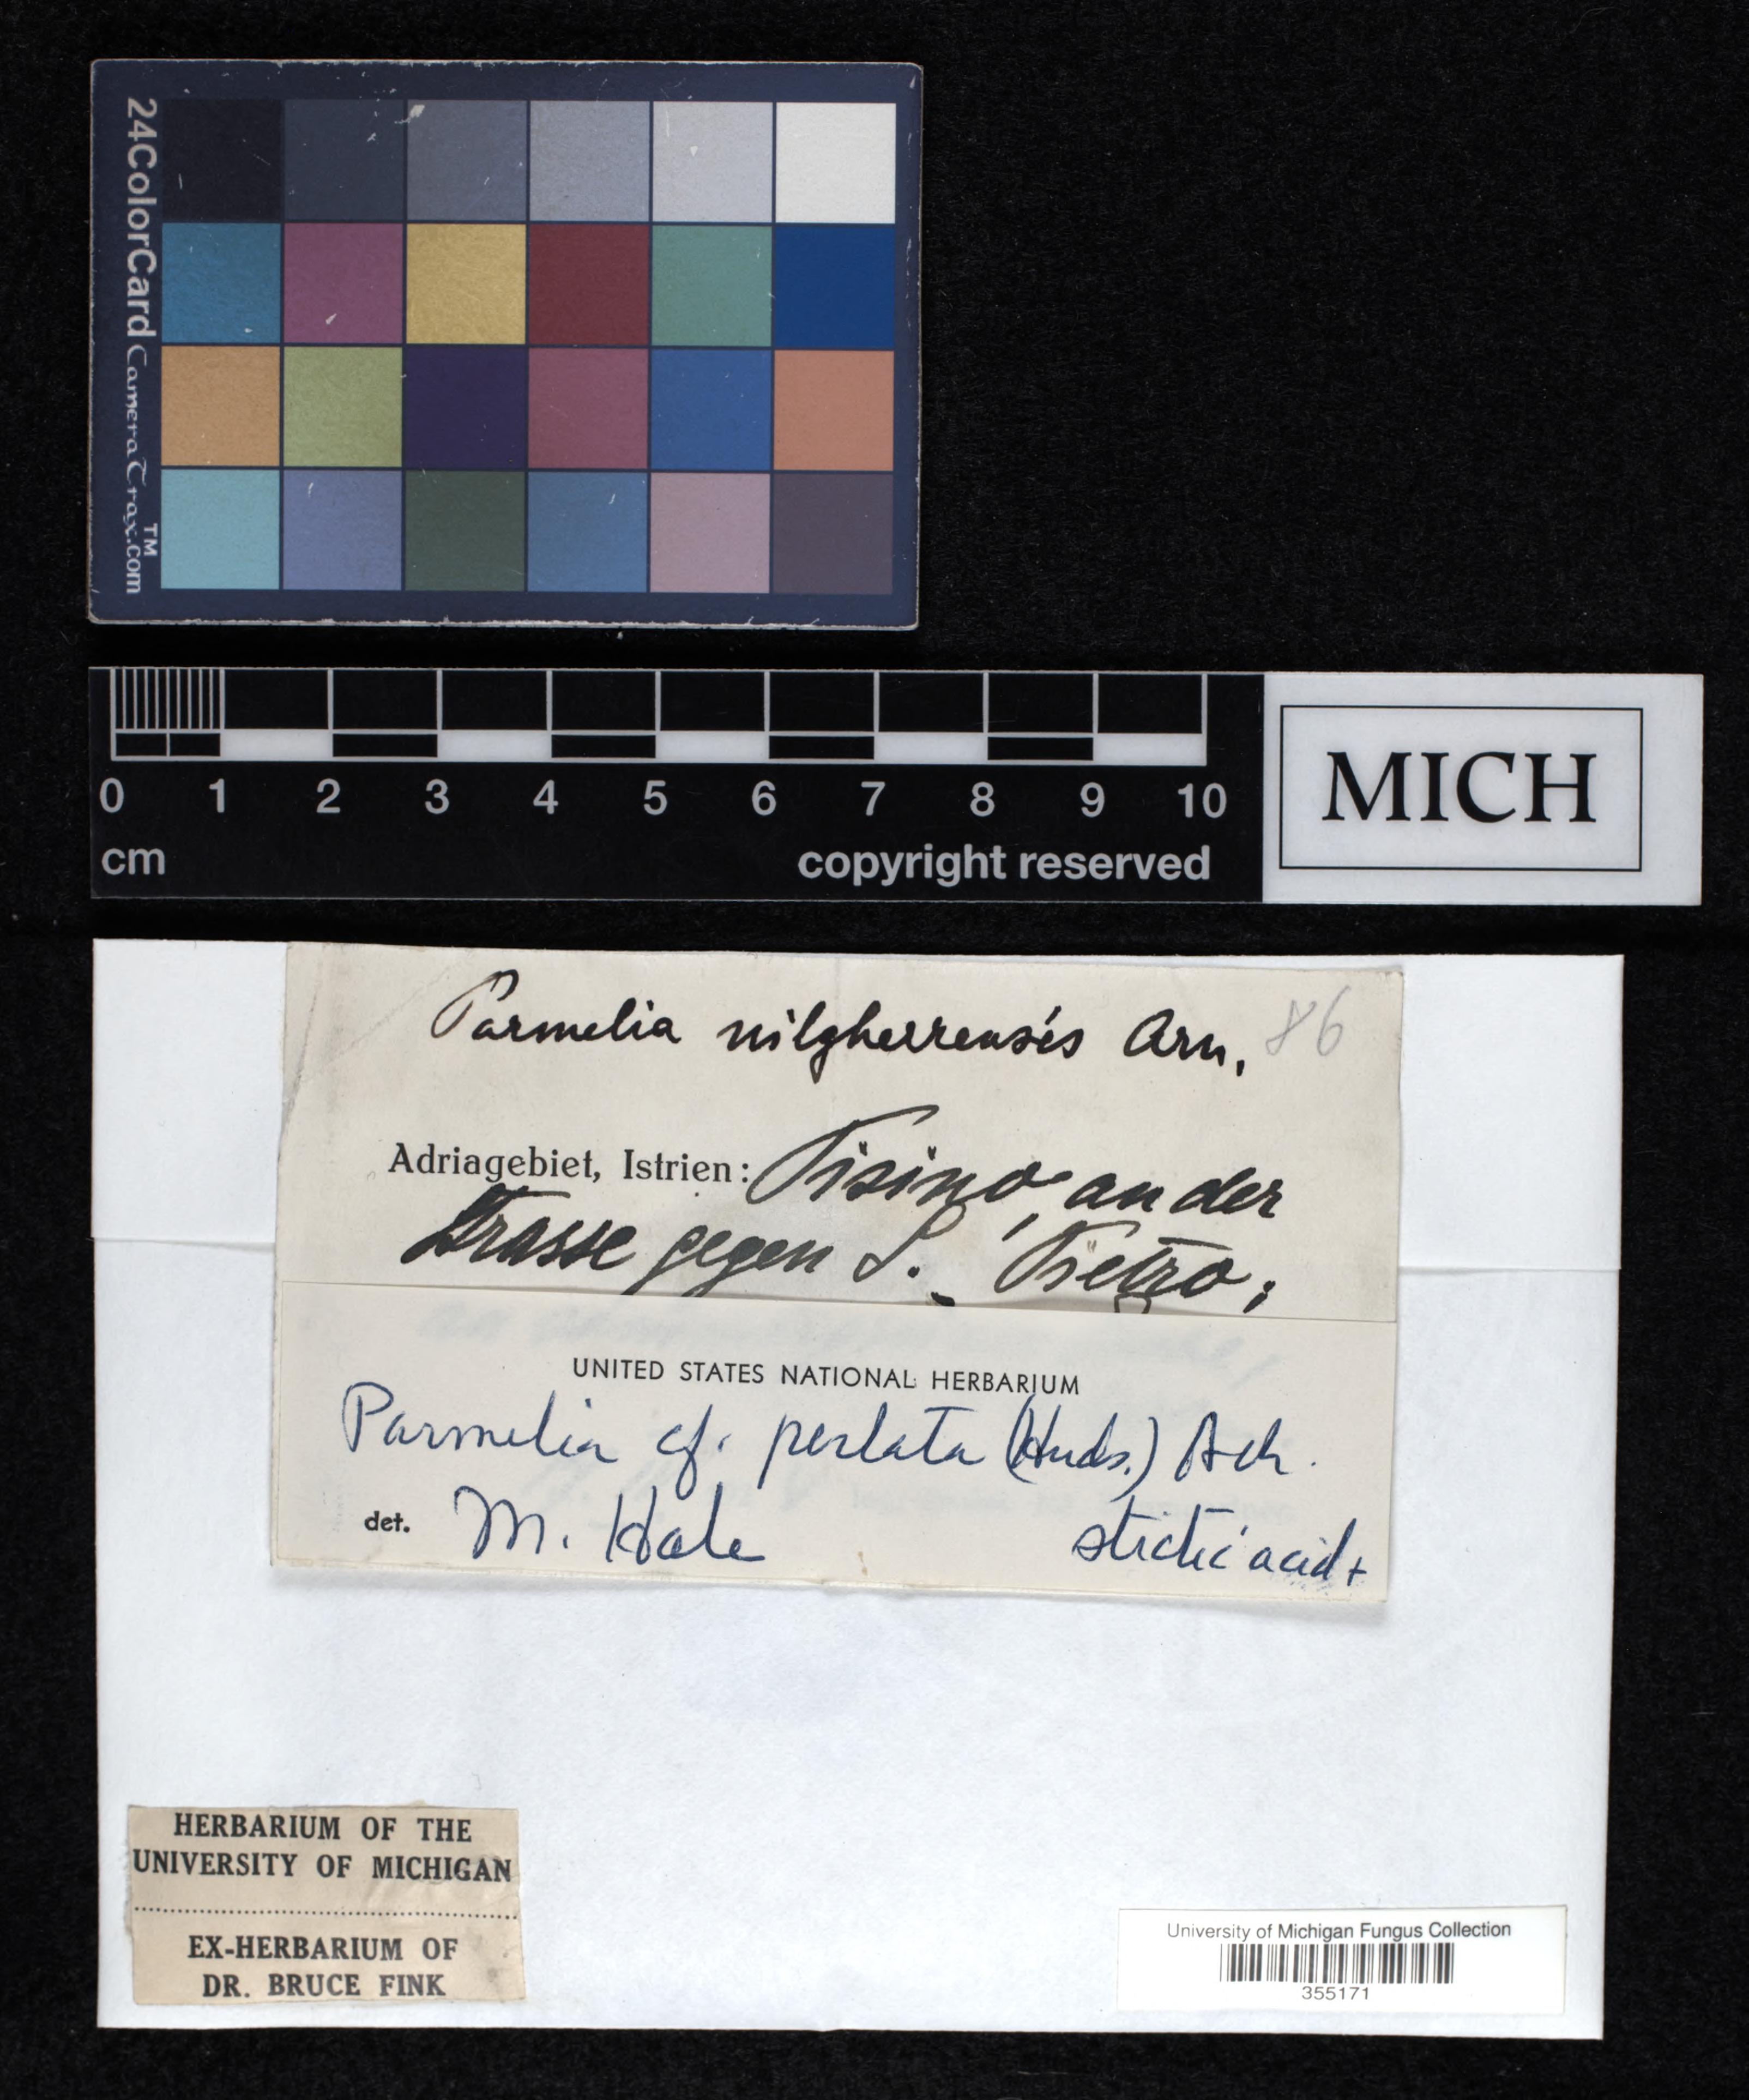 24ColorCard CameraTrax.com™
0 1 2 3 4 5 6 7 8 9 10
cm
copyright reserved
MICH
Parmelia nilgherrensis Arn. 86
Adriagebiet, Istrien: Pisino, an der
Strasse gegen S. Pietro;
UNITED STATES NATIONAL HERBARIUM
Parmelia cf. perlata (Huds.) Ach.
det. M. Hale
stictic acid+
HERBARIUM OF THE
UNIVERSITY OF MICHIGAN
EX-HERBARIUM OF
DR. BRUCE FINK
University of Michigan Fungus Collection
355171